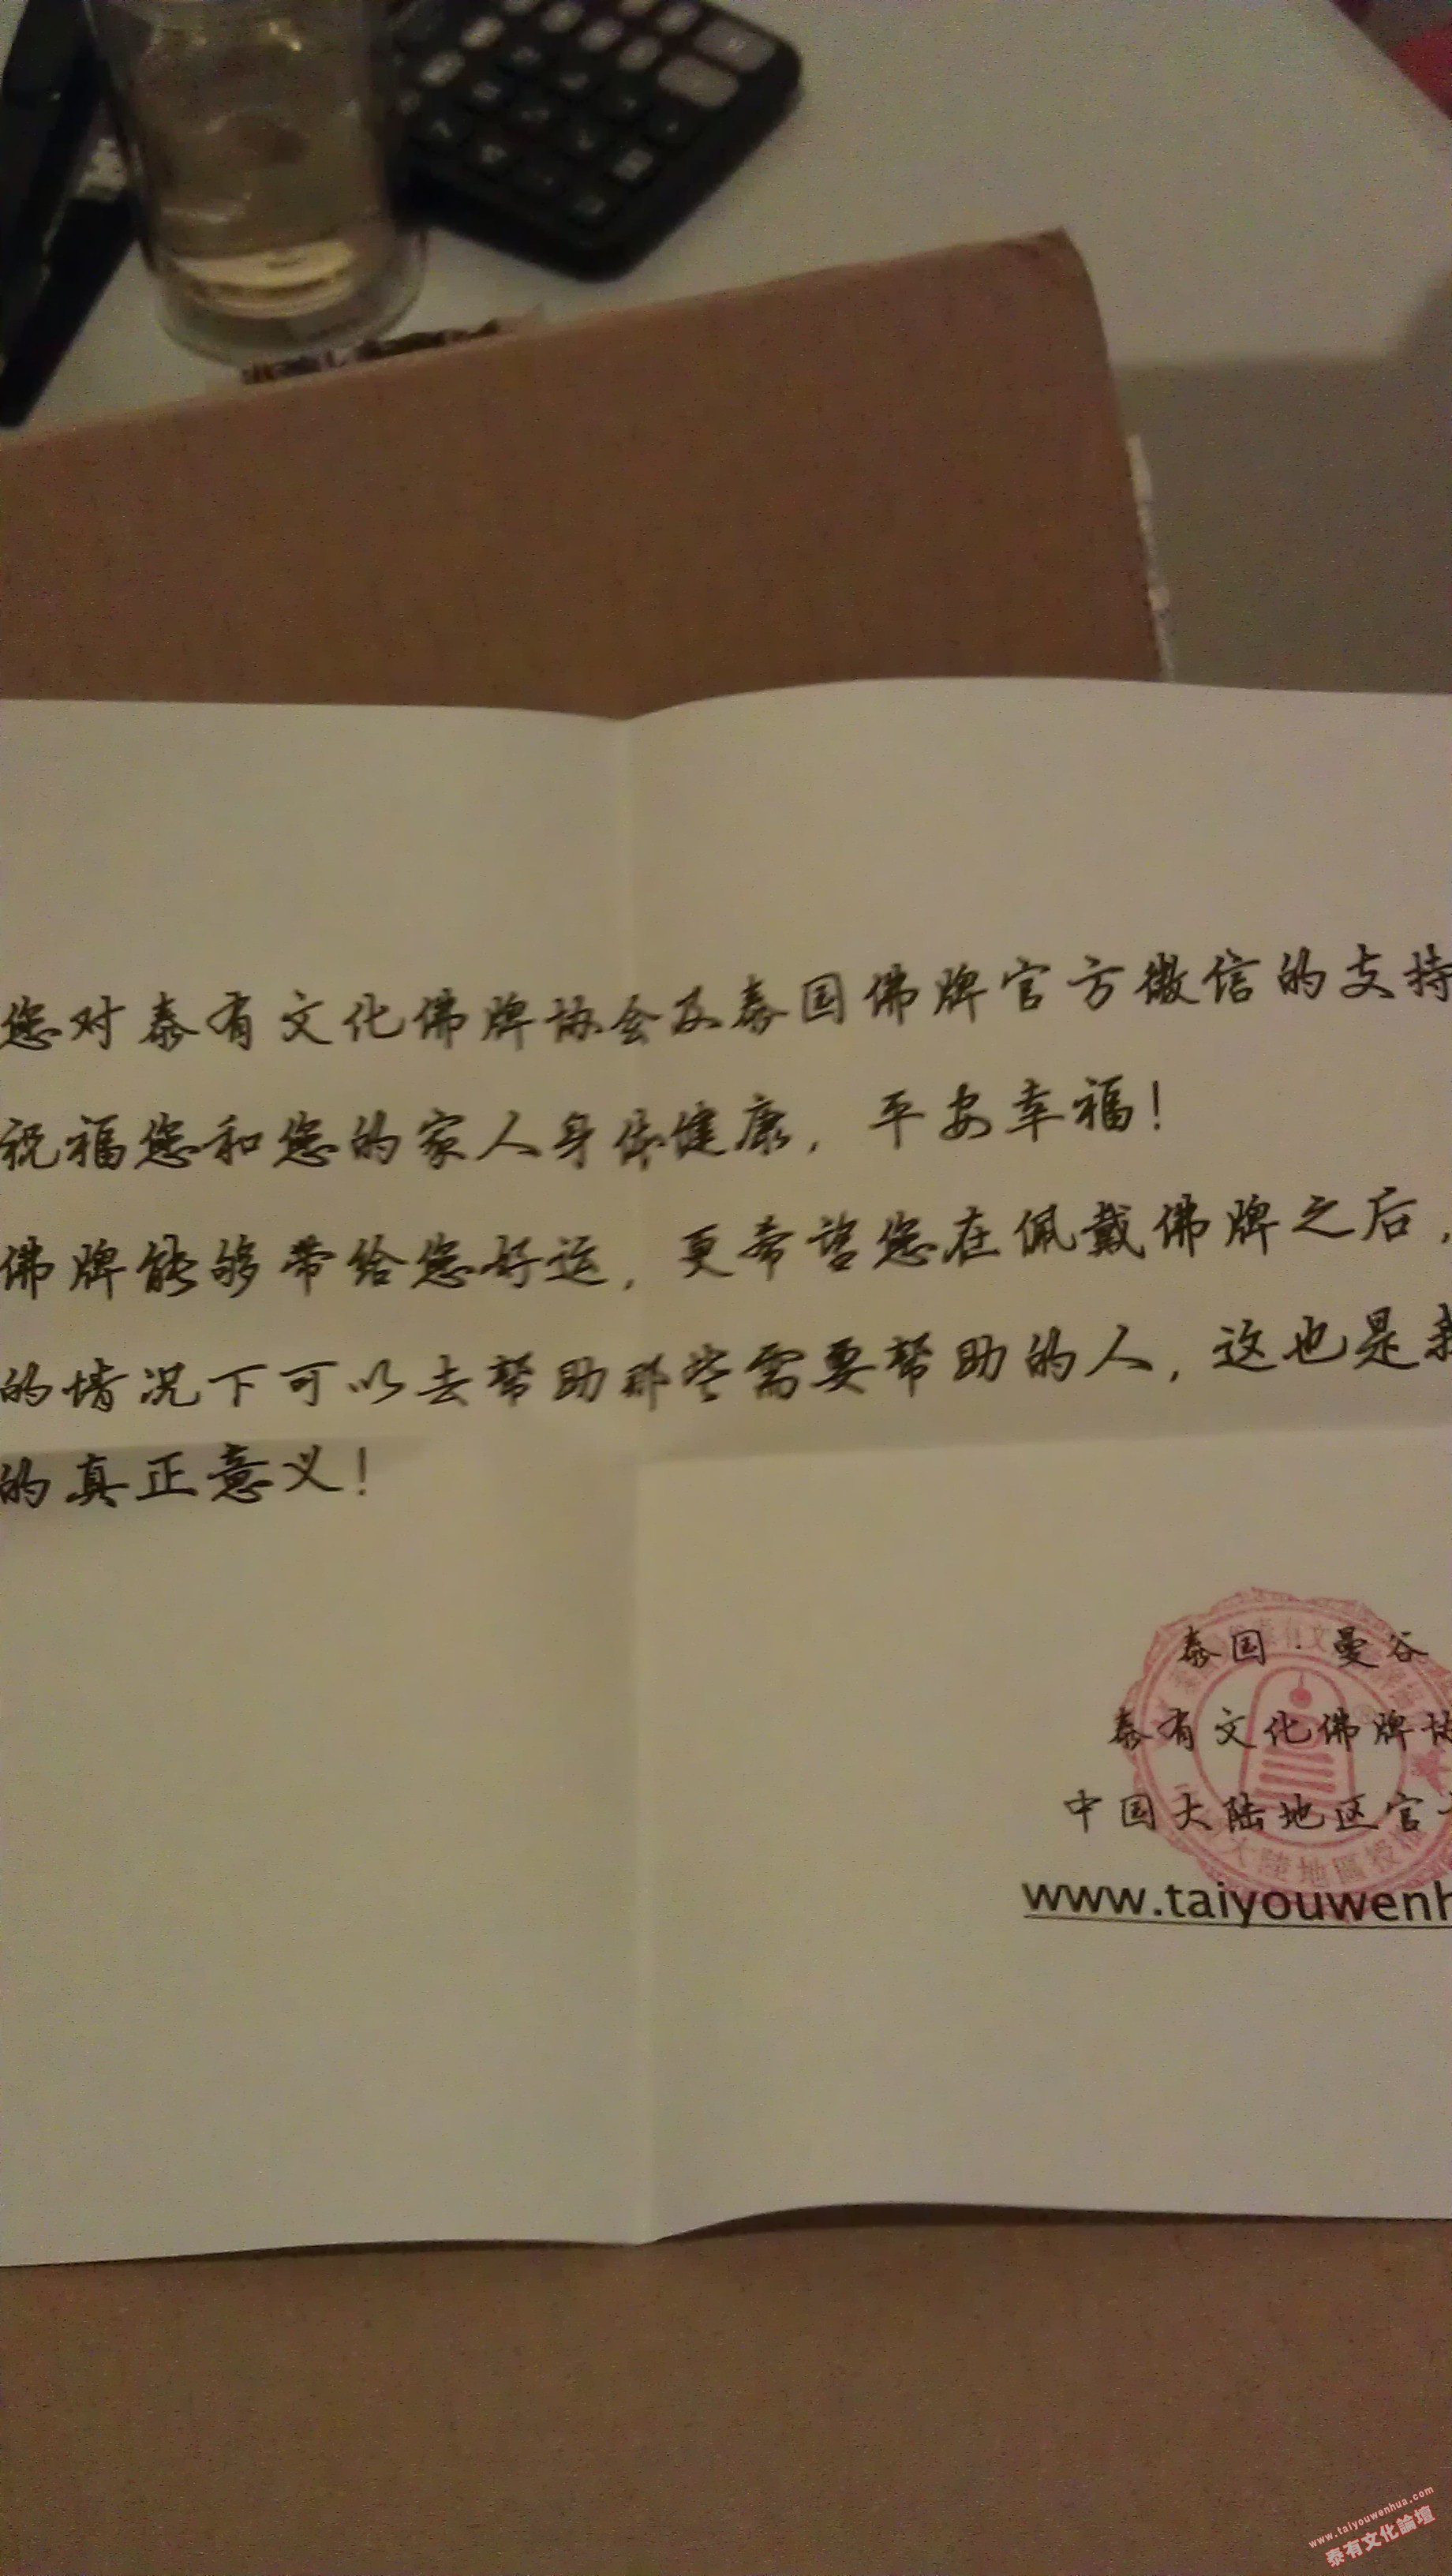 您对泰有文化佛牌协会及泰国佛牌官方微信的支持
祝福您和您的家人身体健康，平安幸福！
佛牌能够带给您好运，更希望您在佩戴佛牌之后，
的情况下可以去帮助那些需要帮助的人，这也是我
的真正意义！
泰国·曼谷
泰有文化佛牌协
中国大陆地区官方
大陸地區授權
www.taiyouwenh
www.taiyouwenhua.com
泰有文化論壇